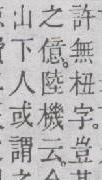 許無杻字。豈
之億。陸機云
山下人或謂